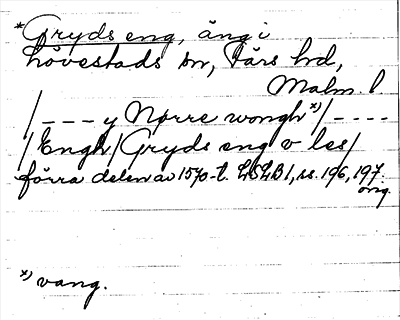 *Gryds eng, äng i
Lövestads sn, Färs hd,
Malm. l
/ - - - y Nørre wongh x)/ - - - -
/Engh/Gryds eng v les/
förra delen av 1570-t. LSLB 1, ss. 196, 197.
orig.
x) vang.